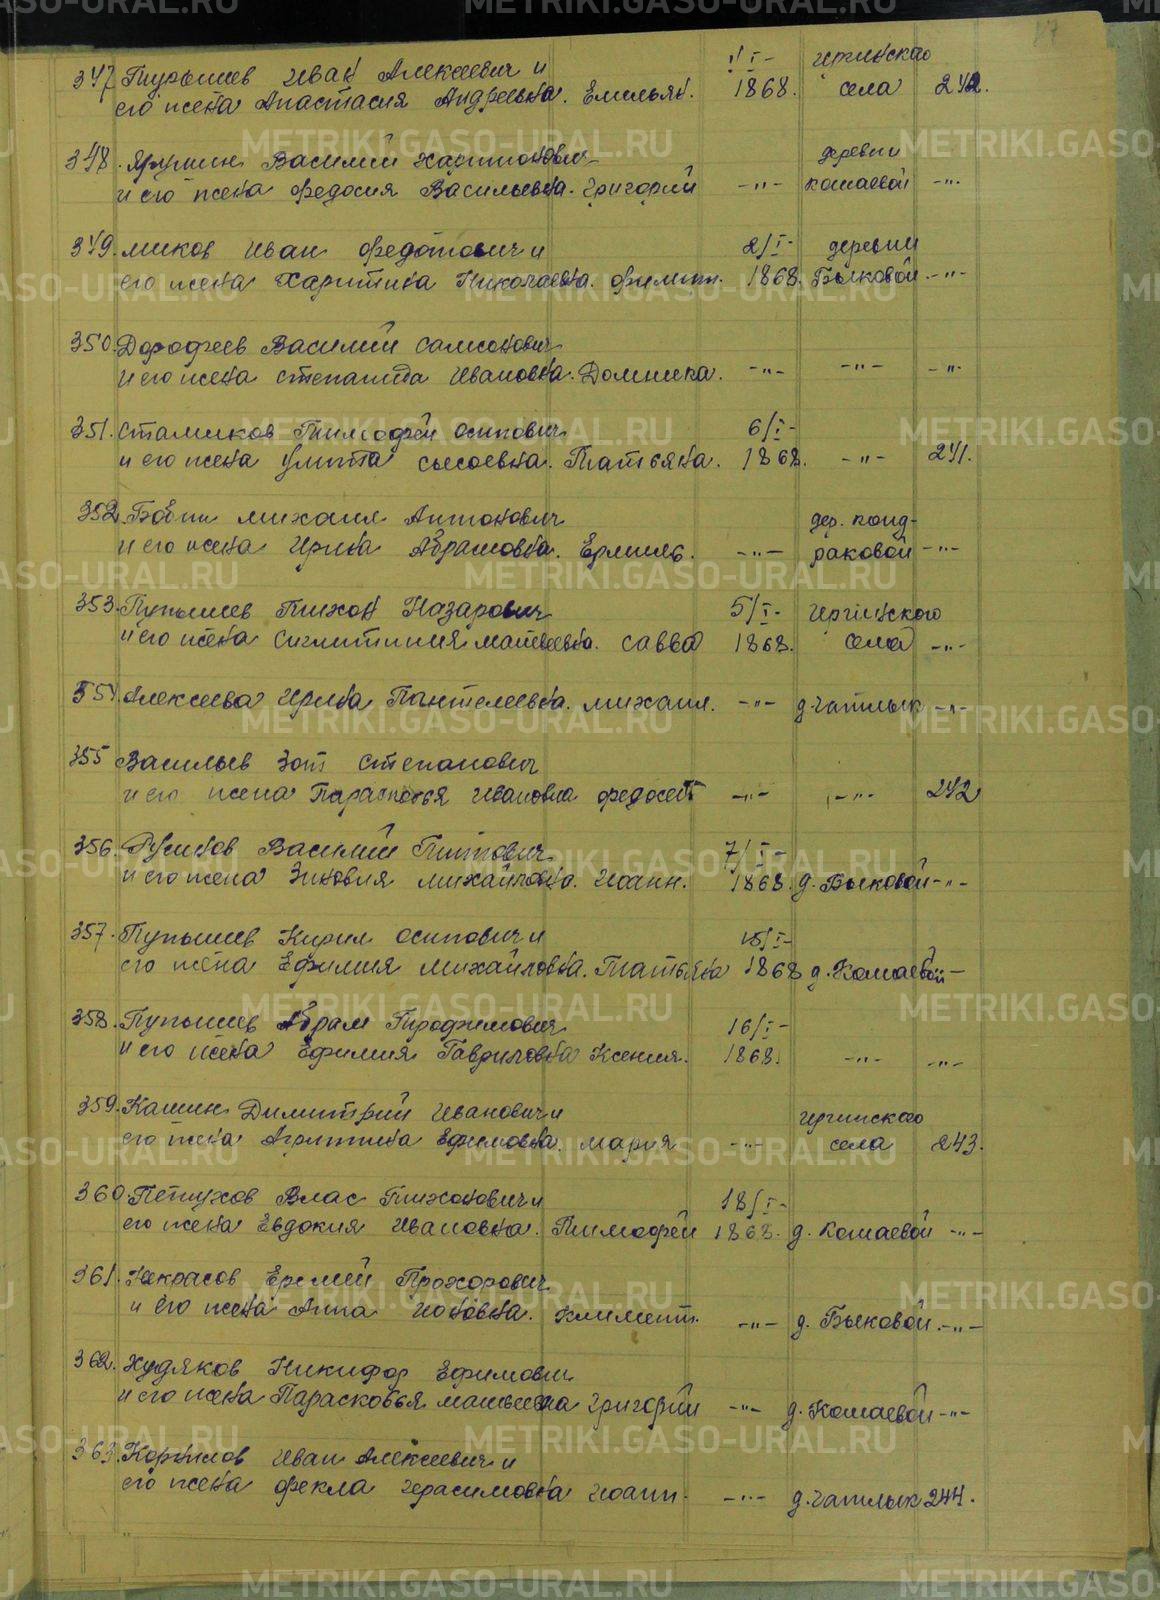 17
347 Пупышев Иван Алексеевич и
1/I-
иргинскаго
его жена Анастасия Андреевна. Емельян. 1868. села 242.
348. Ярушин Василий Харитонович
деревни
и его жена Федосия Васильевна. Григорий -"- Комаевой -"-
349. Миков Иван Федотович и
2/I-
деревни
его жена Харитина Николаевна. Филипп. 1868. Быковой -"-
350. Дорофеев Василий Самсонович
и его жена Степанида Ивановна. Домника. -"- -"- -"-
351. Стамиков Тимофей Осипович
6/I-
и его жена Улита Сысоевна. Татьяна. 1868. -"- 241.
352. Бобин Михаил Антонович
дер. Конд-
и его жена Ирина Абрамовна. Ермил. -"- раковой -"-
353. Пупышев Тихон Назарович
5/I-
Иргинского
и его жена Сиклитиния Матвеевна. Савва 1868. села -"-
354 Алексеева Ирина Пантелеевна. Михаил. -"- д. Чатлык -"-
355 Васильев Зот Степанович
и его жена Парасковья Ивановна Федосей -"- -"- 242
356. Русинов Василий Титович
7/I-
и его жена Зиновия Михайловна. Иоанн. 1868. д. Быковой -"-
357. Пупышев Кирил Осипович и
15/I-
его жена Ефимия Михайловна. Татьяна 1868 д. Комаевой -"-
358. Пупышев Абрам Трофимович
16/I-
и его жена Ефимия Гавриловна Ксения. 1868. -"- -"-
359. Кашин Димитрий Иванович и
иргинскаго
его жена Агриппина Ефимовна. Мария -"- села 243.
360. Петухов Влас Тихонович и
18/I-
его жена Евдокия Ивановна. Тимофей 1868. д. Комаевой -"-
361. Некрасов Еремей Прохорович
и его жена Анна Ионовна. Климент. -"- д. Быковой. -"-
362. Худяков Никифор Ефимович
и его жена Парасковья Матвеевна Григорий -"- д. Комаевой -"-
363. Корнилов Иван Алексеевич и
его жена Фекла Герасимовна Иоанн. -"- д. Чатлык 244.